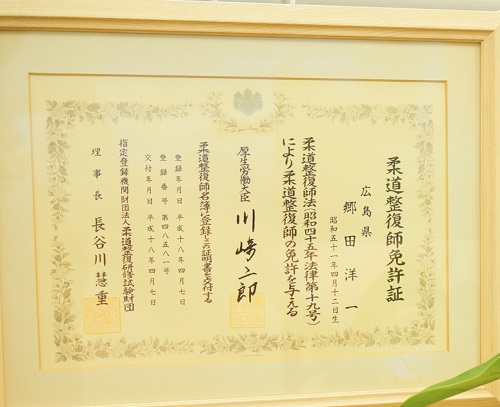 柔道整復師免許証
広島県
郷田洋一
昭和五十一年四月十二日生
柔道整復師法(昭和四十五年法律第十九号)
により柔道整復師の免許を与える
厚生労働大臣 川崎二郎
柔道整復師名簿に登録しこの証明書を交付する
登録年月日 平成十八年四月七日
登録番号 第四八五八一号
交付年月日 平成十八年四月七日
指定登録機関財団法人柔道整復研修試験財団
理事長 長谷川慧重